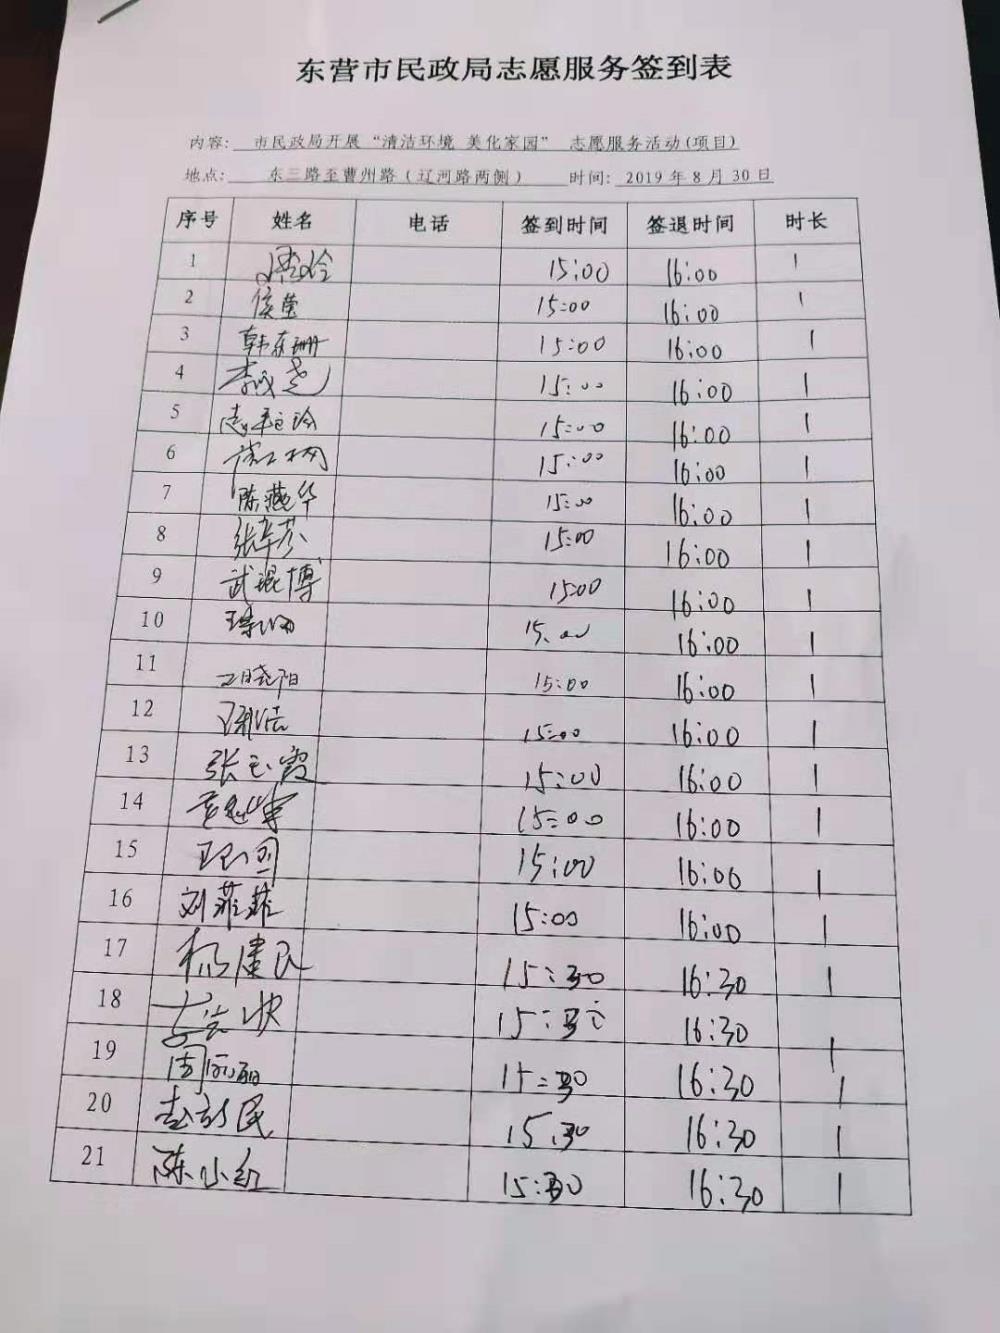 东营市民政局志愿服务签到表
内容: 市民政局开展“清洁环境 美化家园” 志愿服务活动(项目)
地点: 东三路至曹州路(辽河路两侧) 时间: 2019年8月30日
序号 姓名 电话 签到时间 签退时间 时长
1 15:00 16:00 1
2 侯莹 15:00 16:00 1
3 韩东珊 15:00 16:00 1
4 15:00 16:00 1
5 15:00 16:00 1
6 15:00 16:00 1
7 陈燕华 15:00 16:00 1
8 张春芬 15:00 16:00 1
9 武琨博 15:00 16:00 1
10 15:00 16:00 1
11 晓阳 15:00 16:00 1
12 15:00 16:00 1
13 张玉霞 15:00 16:00 1
14 15:00 16:00 1
15 15:00 16:00 1
16 刘菲菲 15:00 16:00 1
17 杨建民 15:30 16:30 1
18 15:30 16:30 1
19 周丽丽 15:30 16:30 1
20 民 15:30 16:30 1
21 陈小红 15:30 16:30 1